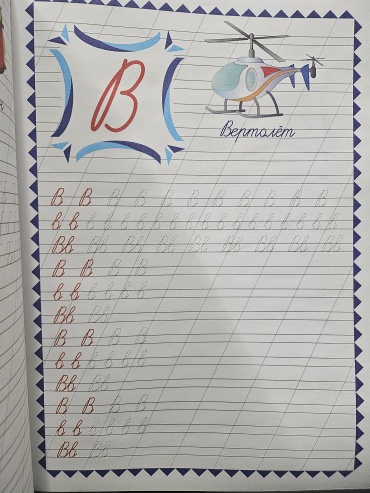 В
Вертолёт
В В В В В В В В В В В
в в в в в в в в в в в в в в в в в в
Вв Вв Вв Вв Вв Вв Вв Вв Вв
В В В В
в в в в в в
Вв Вв
В В В В
в в в в в в
Вв Вв
В В В В
в в в в в в
Вв Вв